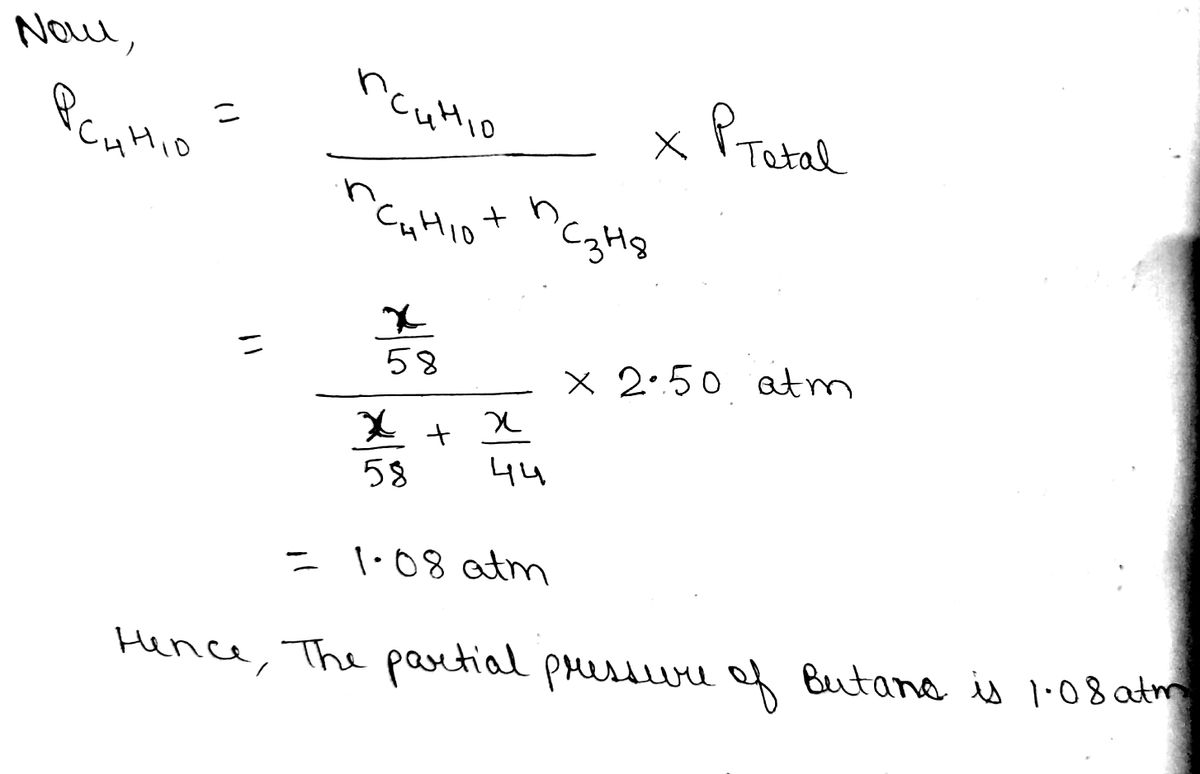 Now,
P_{C_4H_{10}} = \frac{n_{C_4H_{10}}}{n_{C_4H_{10}} + n_{C_3H_8}} × P_{Total}
= \frac{\frac{x}{58}}{\frac{x}{58} + \frac{x}{44}} × 2.50 atm
= 1.08 atm
Hence, The partial pressure of Butane is 1.08 atm